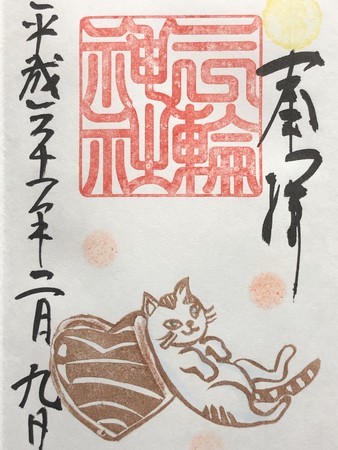 奉拝
三輪神社
平成三十一年二月九日